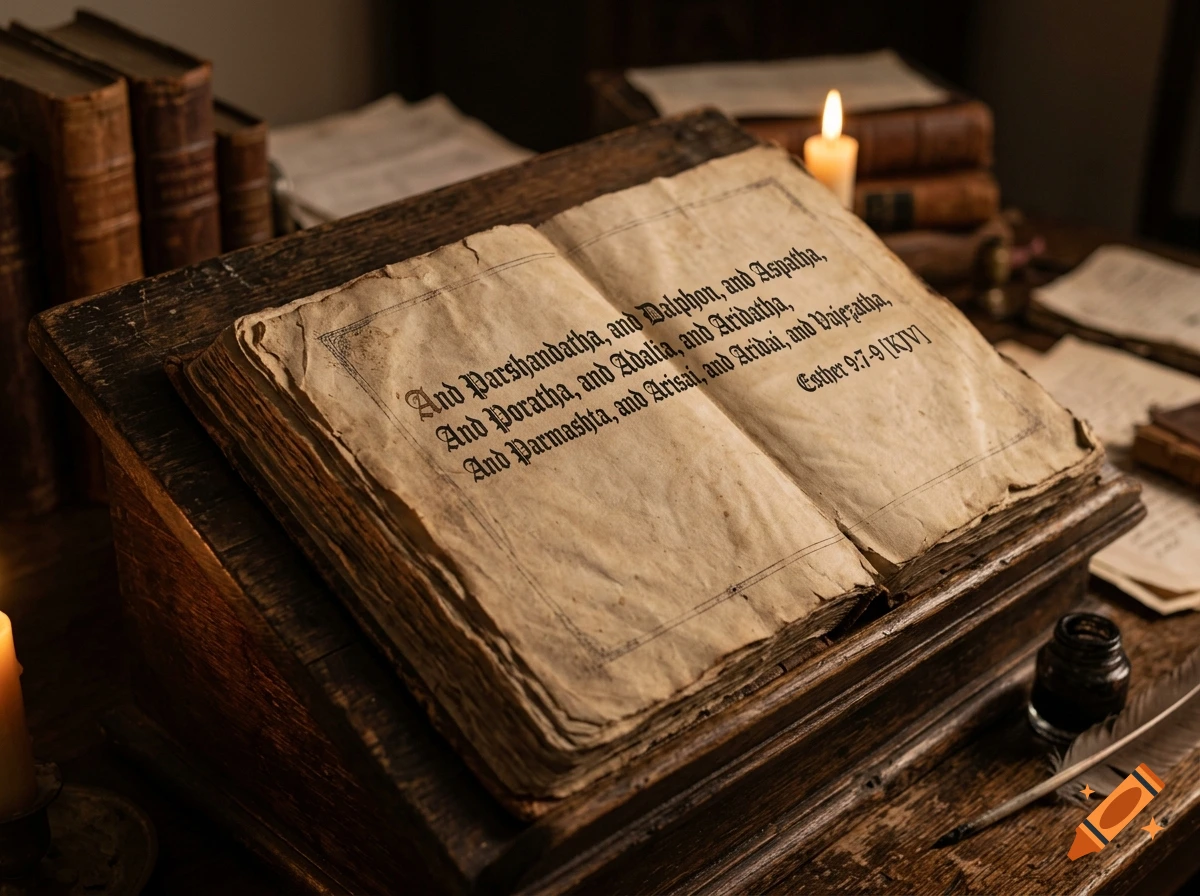 And Parshandatha, and Dalphon, and Aspatha,
And Poratha, and Adalia, and Aridatha,
And Parmashta, and Arisai, and Aridai, and Vajezatha,
Esther 9:7-9 [KJV]